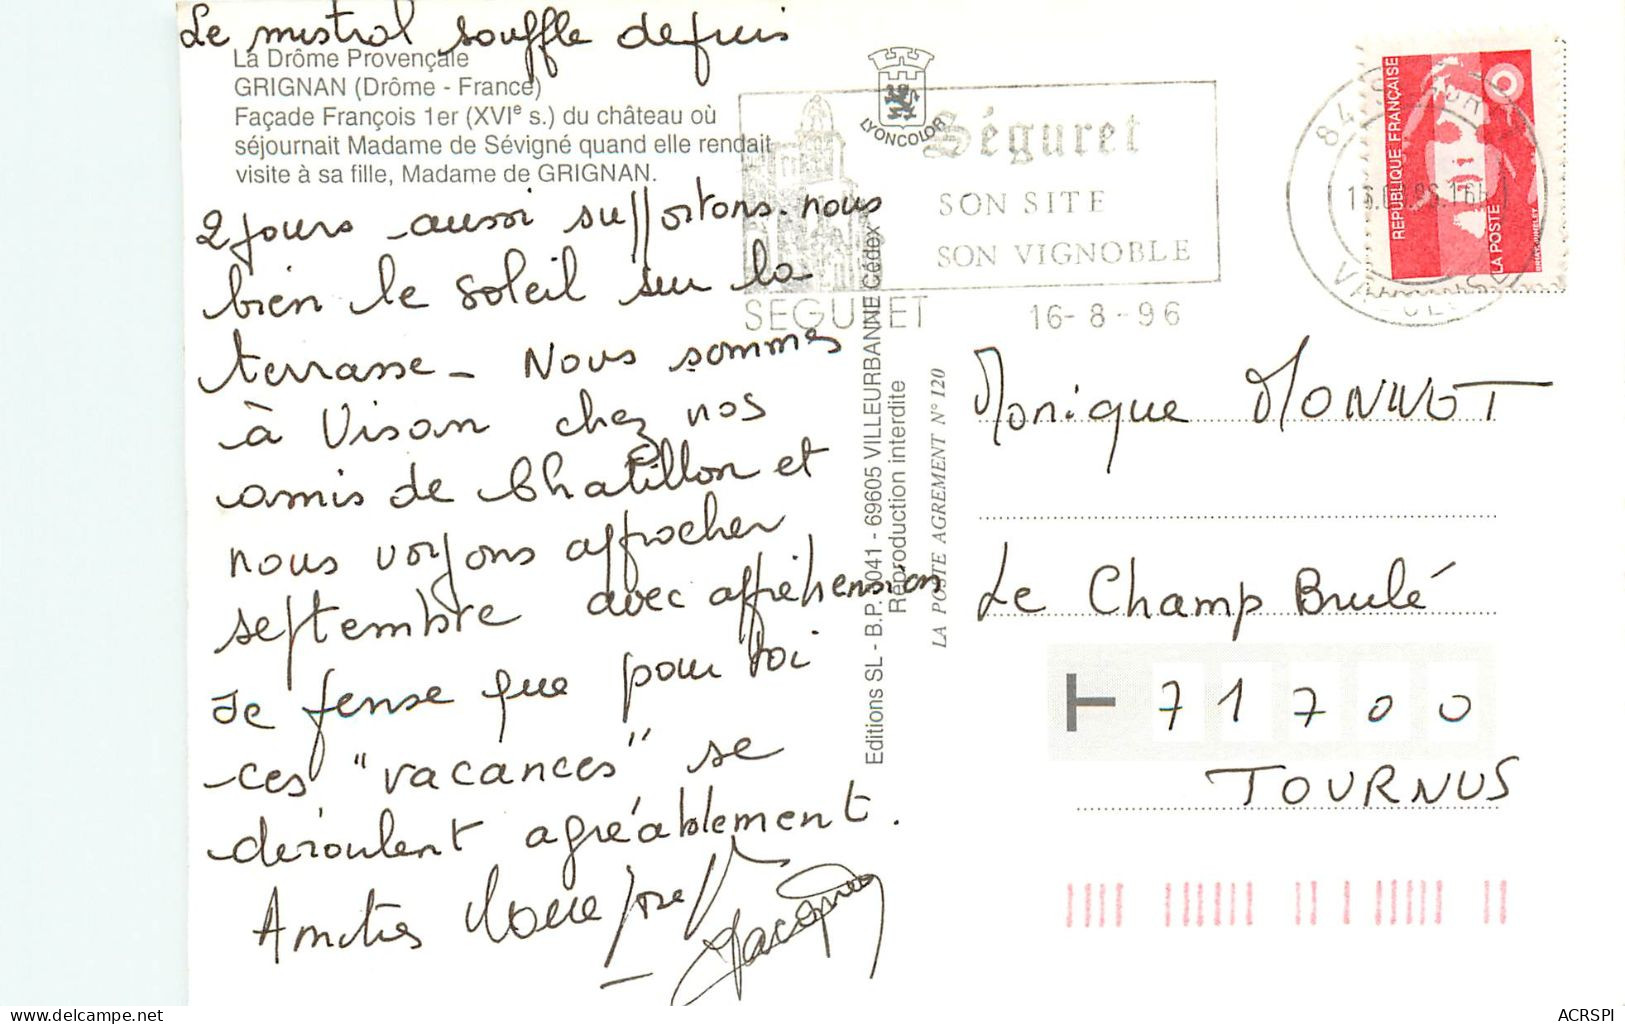 Le mistral souffle depuis
La Drôme Provençale
GRIGNAN (Drôme - France)
Façade François 1er (XVIe s.) du château où
séjournait Madame de Sévigné quand elle rendait
visite à sa fille, Madame de GRIGNAN.
2 jours aussi supportons-nous
bien le soleil sur la
terrasse - Nous sommes
à Visan chez nos
amis de Chatillon et
nous voyons approcher
septembre avec appréhension
Je pense que pour toi
ces "vacances" se
déroulent agréablement.
Amitiés
Jacques
LYONCOLOR
Séguret
SON SITE
SON VIGNOBLE
SEGURET
16-8-96
REPUBLIQUE FRANÇAISE
LA POSTE
Editions SL - B.P. 3041 - 69605 VILLEURBANNE Cédex
Reproduction interdite
LA POSTE AGREMENT N° 120
Monique MONNOT
Le Champ Brulé
T 71700
TOURNUS
www.delcampe.net/tontoncarton
ACRSPI